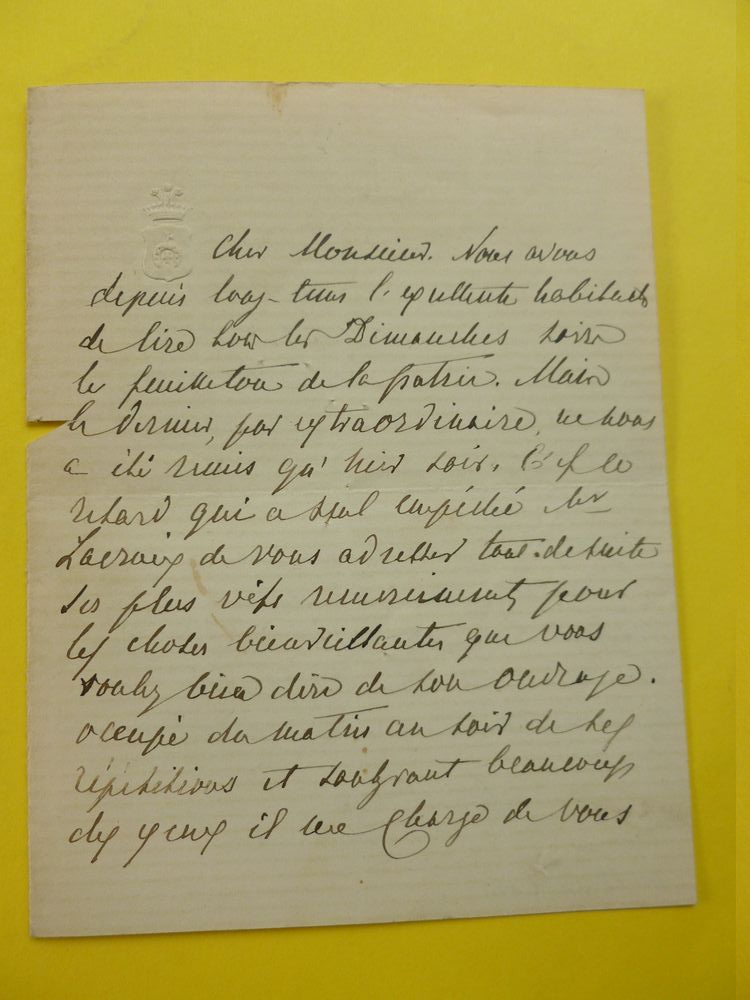 Cher Monsieur. Nous avons
depuis long-tems l'excellente habitude
de lire tous les Dimanches soirs
le feuilleton de la patrie. Mais
le dernier, par extraordinaire, ne nous
a été remis qu'hier soir. C'est ce
retard qui a seul empêché Mr
Lacroix de vous adresser tout-de suite
ses plus vifs remerciments pour
les choses bienveillantes que vous
voulez bien dire de son ouvrage.
occupé du matin au soir de ses
répétitions et souffrant beaucoup
des yeux il me charge de vous